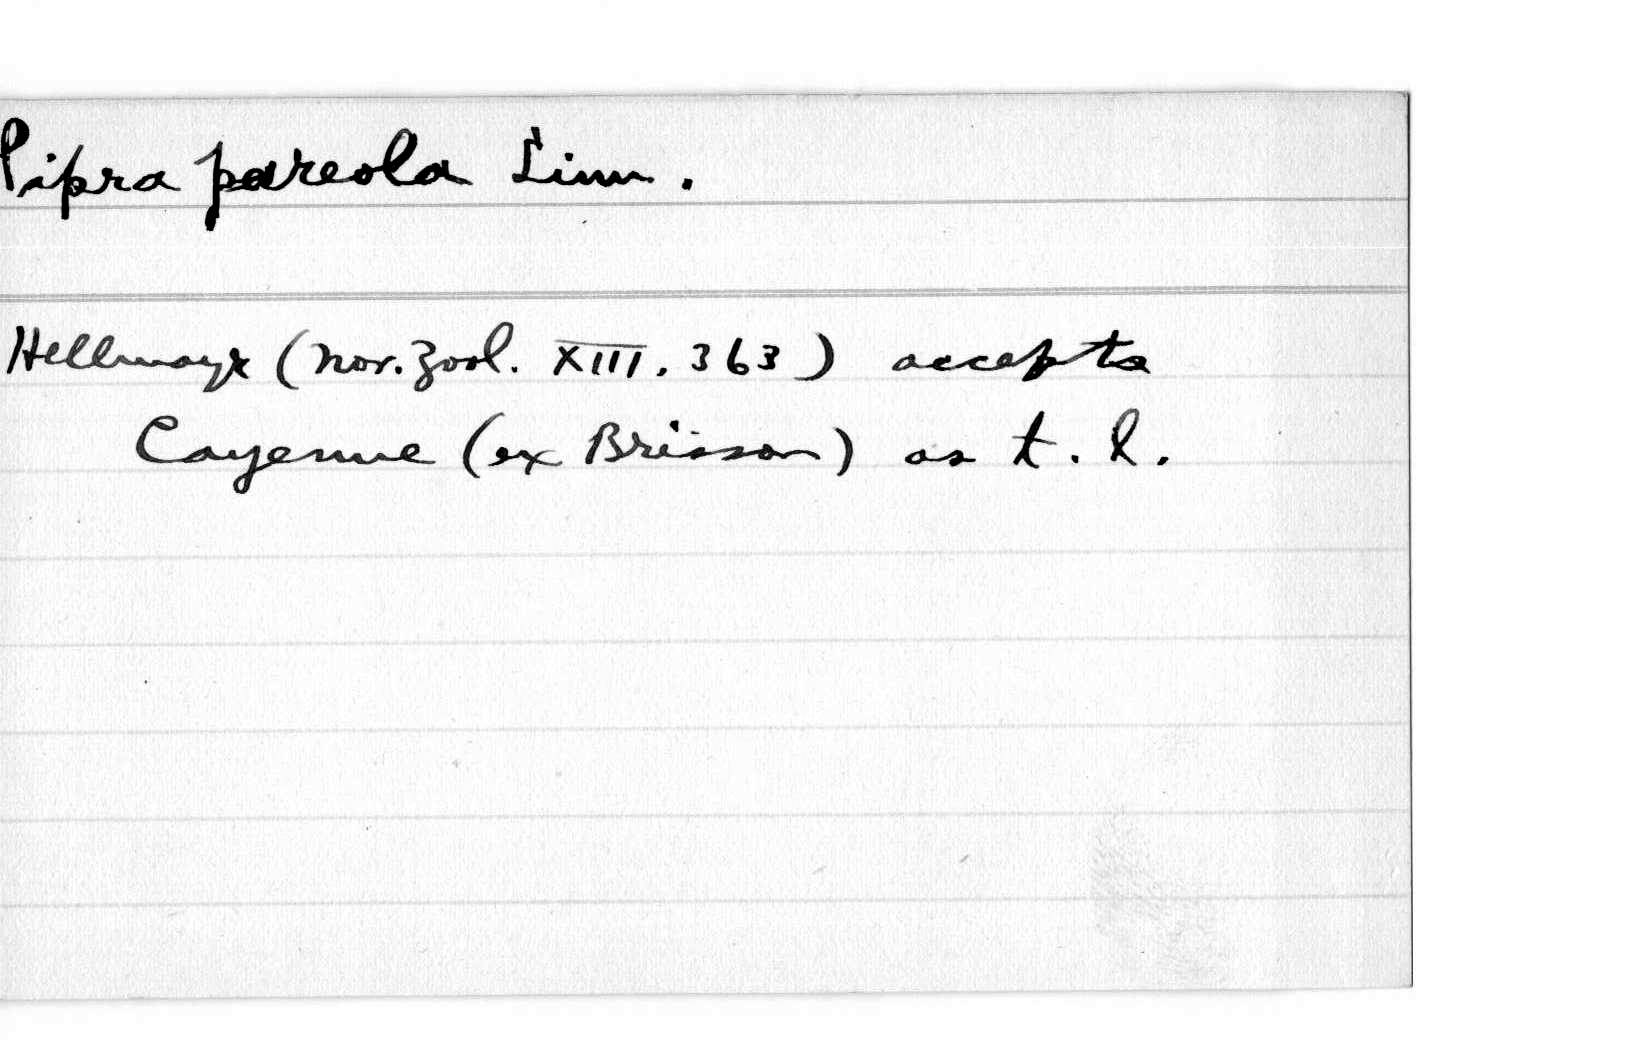 Pipra pareola Linn.
Hellmayr (Nov. Zool. XIII. 363) accepts
Cayenne (ex Brisson) as t. l.